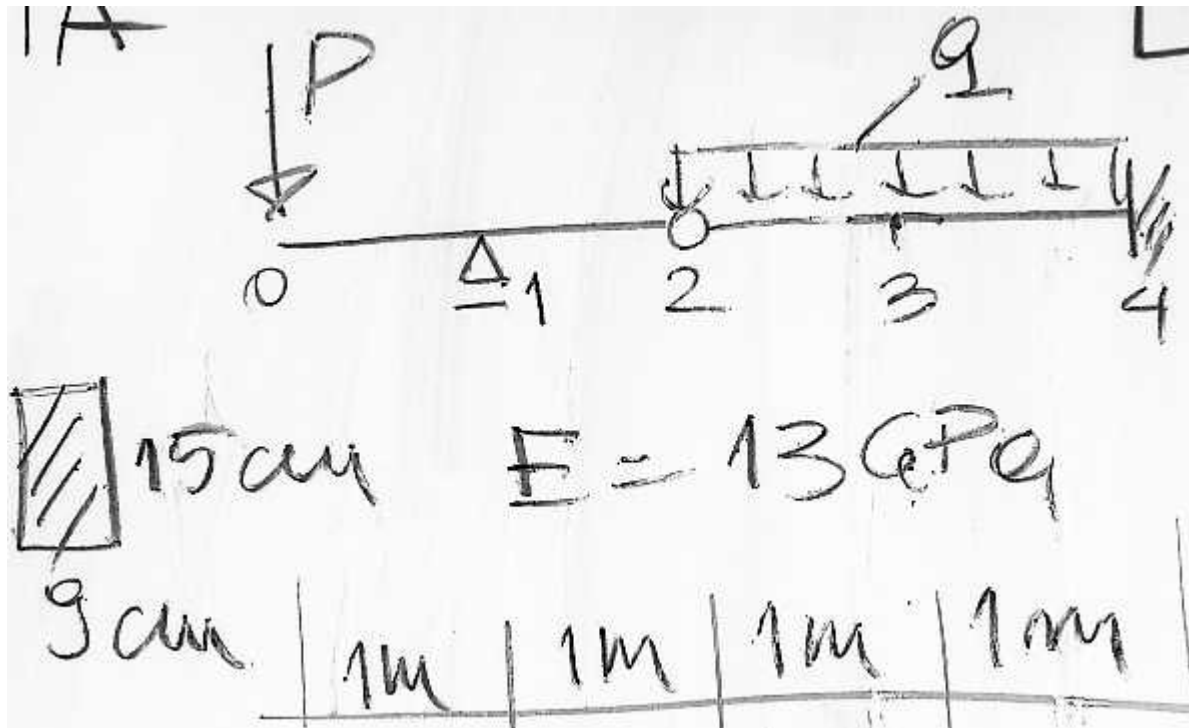 1A
P
q
0 1 2 3 4
15cm E = 13GPa
9cm
1m 1m 1m 1m